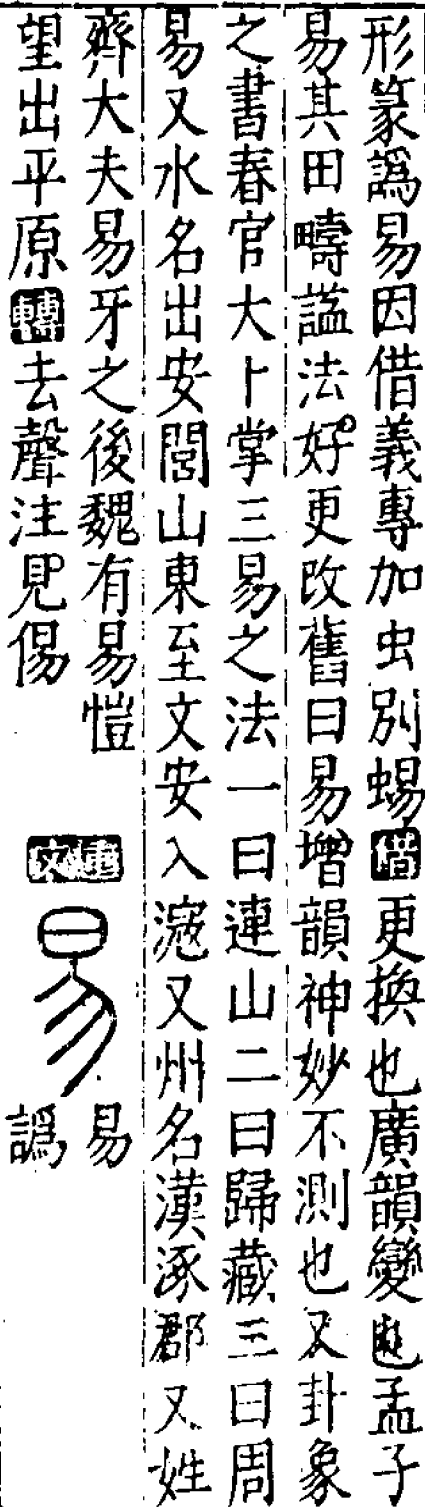 形篆譌易因借義專加虫別蜴借更換也廣韻變也孟子
易其田疇諡法好更改舊曰易增韻神妙不測也又卦象
之書春官大卜掌三易之法一曰連山二曰歸藏三曰周
易又水名出安閻山東至文安入滱又州名漢涿郡又姓
齊大夫易牙之後魏有易愷
望出平原轉去聲注見傷
重文
易
易
譌